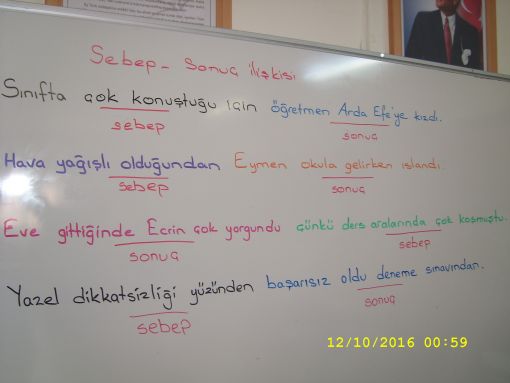 Sebep - sonuç ilişkisi
Sınıfta çok konuştuğu için öğretmen Arda Efe'ye kızdı.
sebep sonuç
Hava yağışlı olduğundan Eymen okula gelirken ıslandı.
sebep sonuç
Eve gittiğinde Ecrin çok yorgundu çünkü ders aralarında çok koşmuştu.
sonuç sebep
Yazel dikkatsizliği yüzünden başarısız oldu deneme sınavından.
sebep sonuç
12/10/2016 00:59